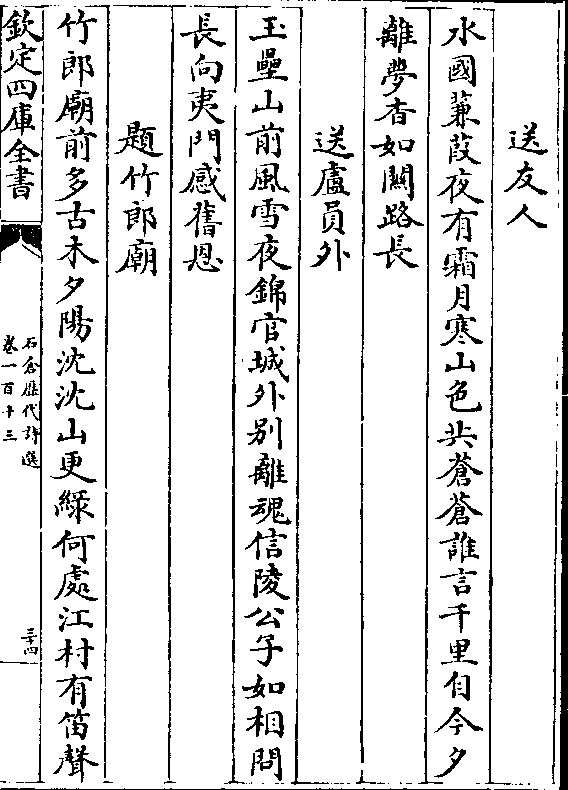 送友人
水國蒹葭夜有霜月寒山色共蒼蒼誰言千里自今夕
離夢杳如關路長
送盧員外
玉壘山前風雪夜錦官城外別離魂信陵公子如相問
長向夷門感舊恩
題竹郎廟
竹郎廟前多古木夕陽沈沈山更綠何處江村有笛聲
欽定四庫全書
石倉歷代詩選
卷一百十三
三十四